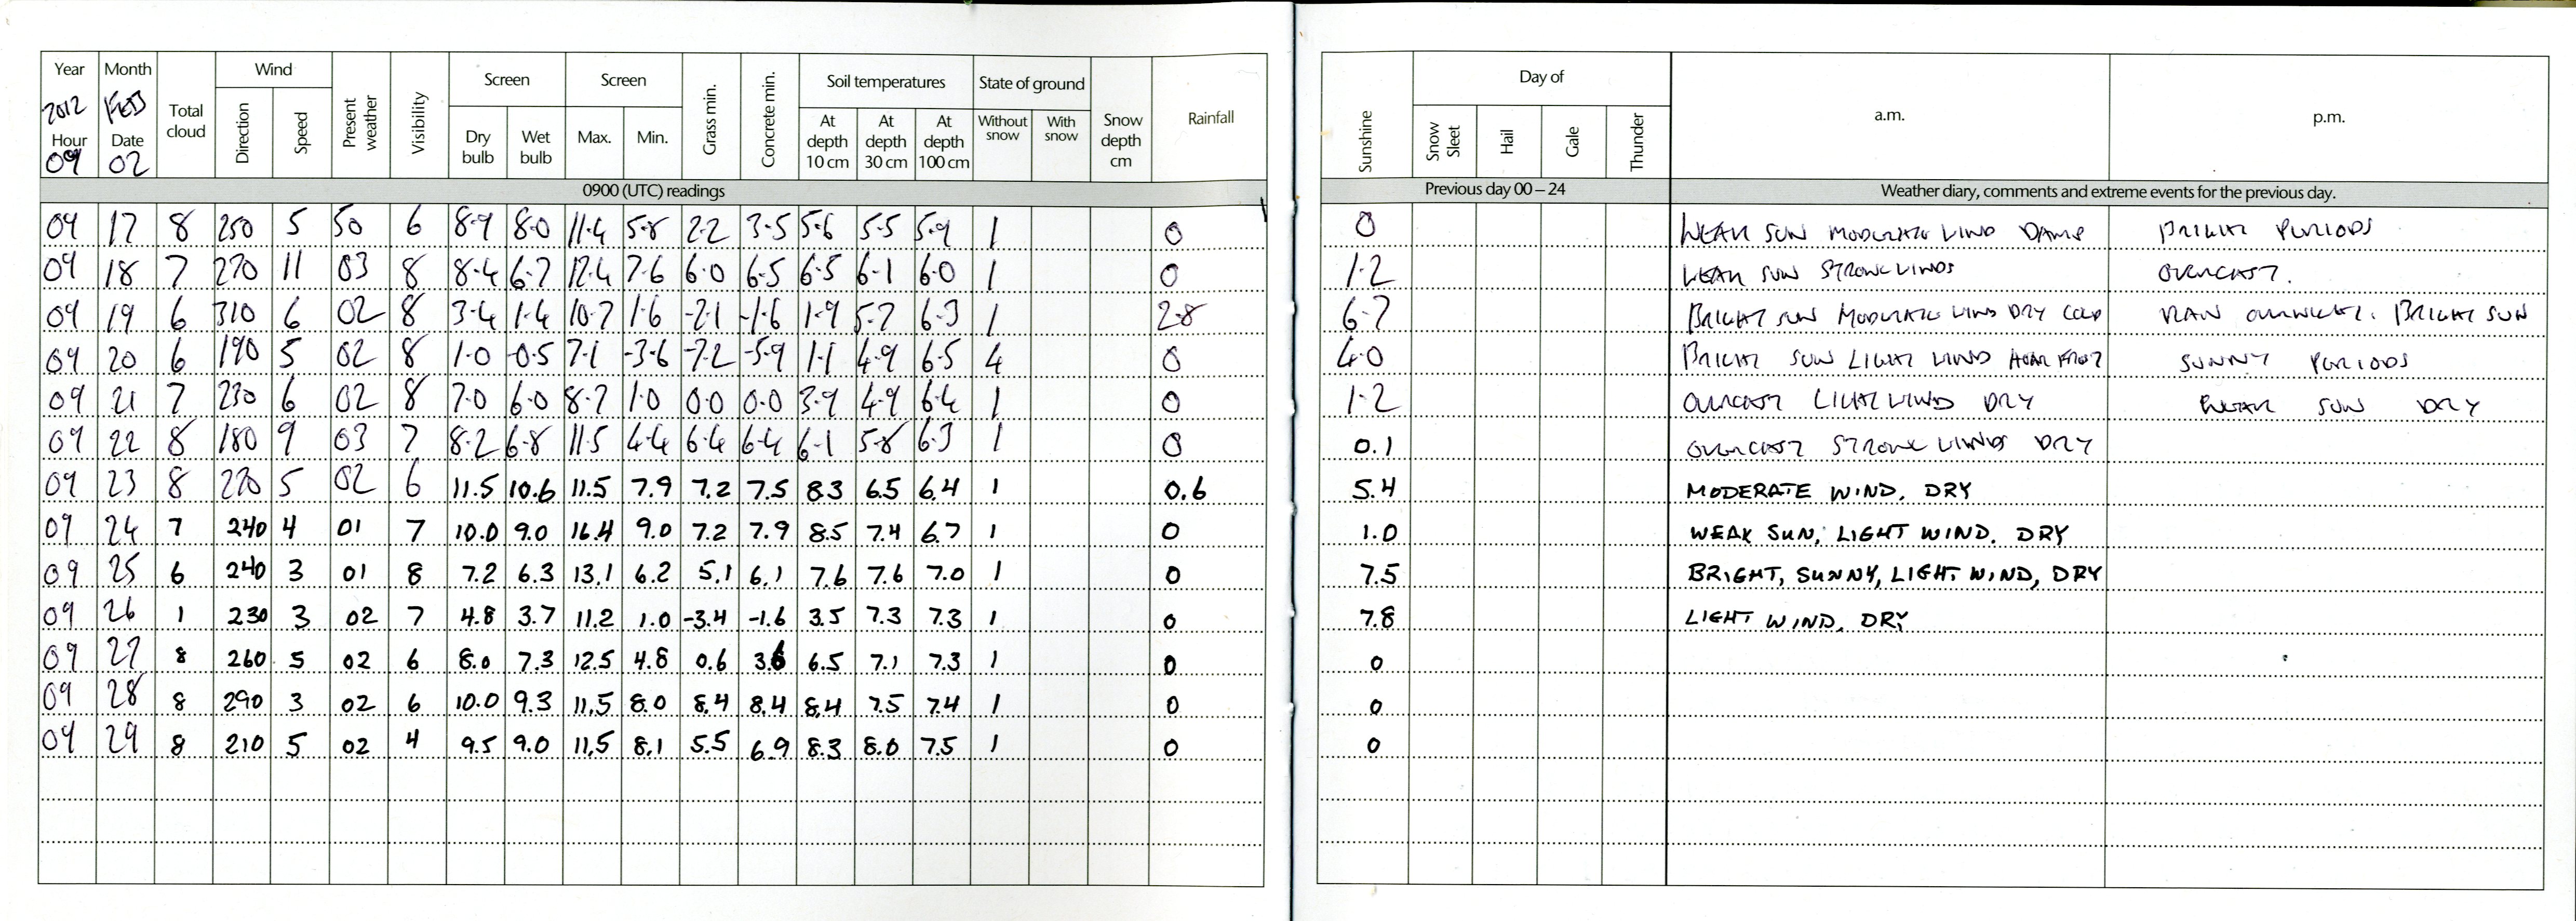 Year Month Total cloud Wind Present weather Visibility Screen Screen Grass min. Concrete min. Soil temperatures State of ground Snow depth cm Rainfall Sunshine Day of a.m. p.m.
2012 FEB Direction Speed Dry bulb Wet bulb Max. Min. At depth 10 cm At depth 30 cm At depth 100 cm Without snow With snow Snow Sleet Hail Gale Thunder
Hour Date
09 02
0900 (UTC) readings Previous day 00 – 24 Weather diary, comments and extreme events for the previous day.
09 17 8 250 5 50 6 8.9 8.0 11.4 5.8 2.2 3.5 5.6 5.5 5.9 1 0 0 WEAK SUN MODERATE WIND DAMP BRIGHT PERIODS
09 18 7 270 11 03 8 8.4 6.7 12.4 7.6 6.0 6.5 6.5 6.1 6.0 1 0 1.2 WEAK SUN STRONG WINDS OVERCAST.
09 19 6 310 6 02 8 3.4 1.4 10.7 1.6 -2.1 -1.6 1.9 5.7 6.3 1 2.8 6.7 BRIGHT SUN MODERATE WIND DRY COLD RAIN OVERNIGHT. BRIGHT SUN
09 20 6 190 5 02 8 1.0 -0.5 7.1 -3.6 -7.2 -5.9 1.1 4.9 6.5 4 0 4.0 BRIGHT SUN LIGHT WIND HOAR FROST SUNNY PERIODS
09 21 7 230 6 02 8 7.0 6.0 8.7 1.0 0.0 0.0 3.9 4.9 6.4 1 0 1.2 OVERCAST LIGHT WIND DRY WEAK SUN DRY
09 22 8 180 9 03 7 8.2 6.8 11.5 4.4 6.4 6.4 6.1 5.8 6.3 1 0 0.1 OVERCAST STRONG WINDS DRY
09 23 8 220 5 02 6 11.5 10.6 11.5 7.9 7.2 7.5 8.3 6.5 6.4 1 0.6 5.4 MODERATE WIND. DRY
09 24 7 240 4 01 7 10.0 9.0 16.4 9.0 7.2 7.9 8.5 7.4 6.7 1 0 1.0 WEAK SUN, LIGHT WIND. DRY
09 25 6 240 3 01 8 7.2 6.3 13.1 6.2 5.1 6.1 7.6 7.6 7.0 1 0 7.5 BRIGHT, SUNNY, LIGHT WIND, DRY
09 26 1 230 3 02 7 4.8 3.7 11.2 1.0 -3.4 -1.6 3.5 7.3 7.3 1 0 7.8 LIGHT WIND. DRY
09 27 8 260 5 02 6 8.0 7.3 12.5 4.8 0.6 3.6 6.5 7.1 7.3 1 0 0
09 28 8 290 3 02 6 10.0 9.3 11.5 8.0 8.4 8.4 8.4 7.5 7.4 1 0 0
09 29 8 210 5 02 4 9.5 9.0 11.5 8.1 5.5 6.9 8.3 8.0 7.5 1 0 0